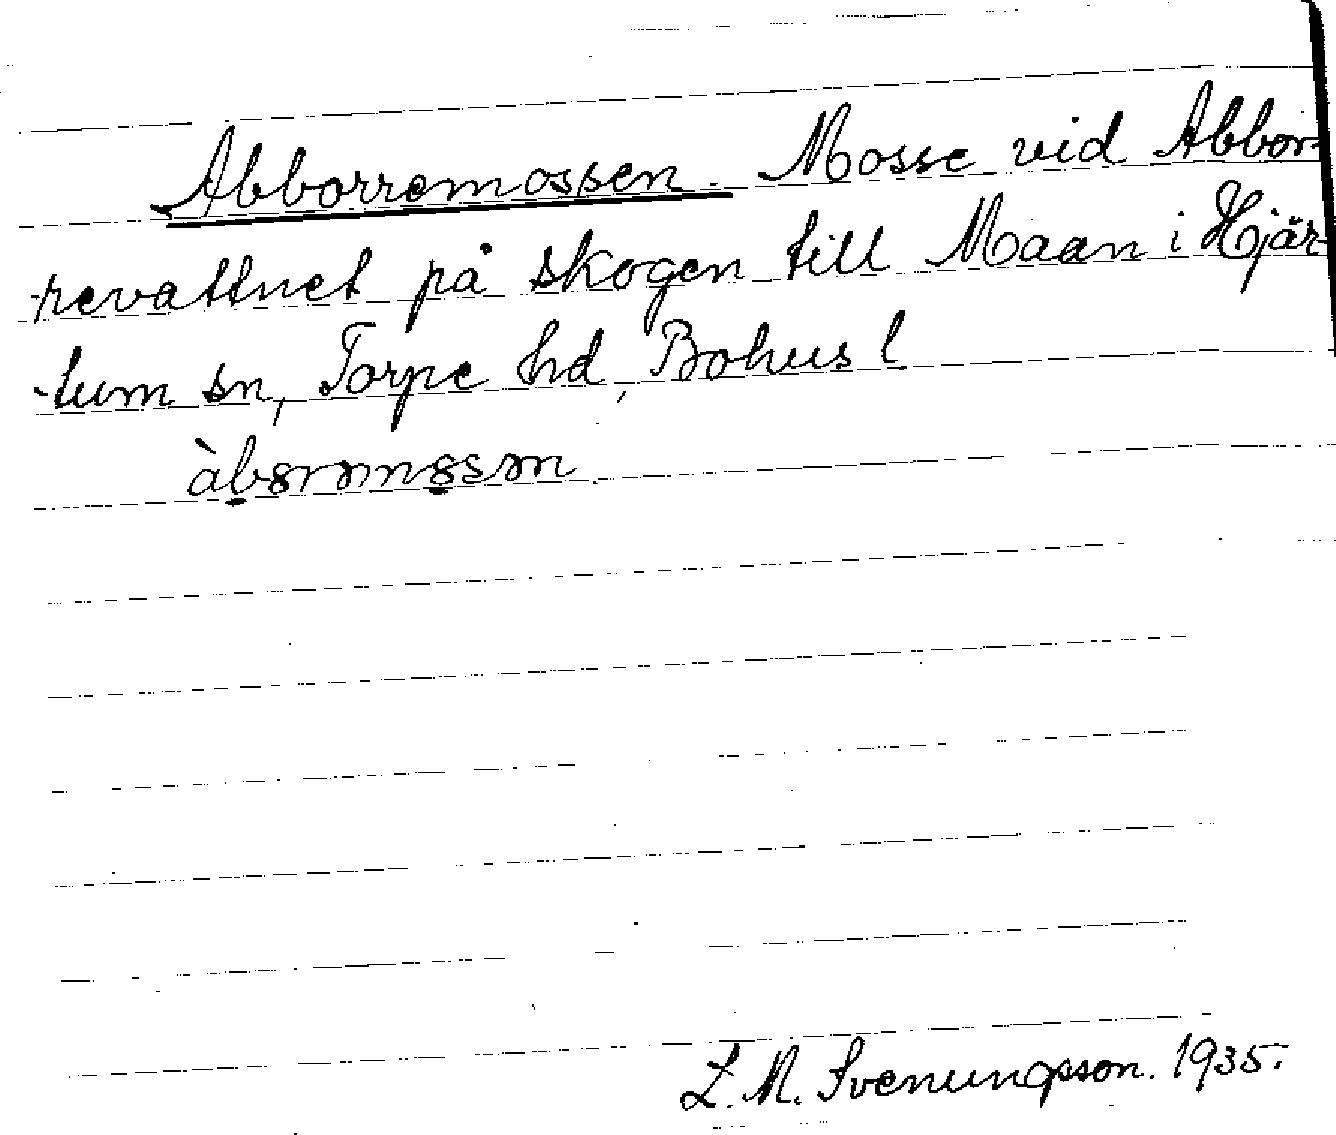 Abborremossen. Mosse vid Abbor-
revattnet på skogen till Maan i Hjär-
tum sn, Torpe hd, Bohus l
L. M. Svenungsson. 1935.